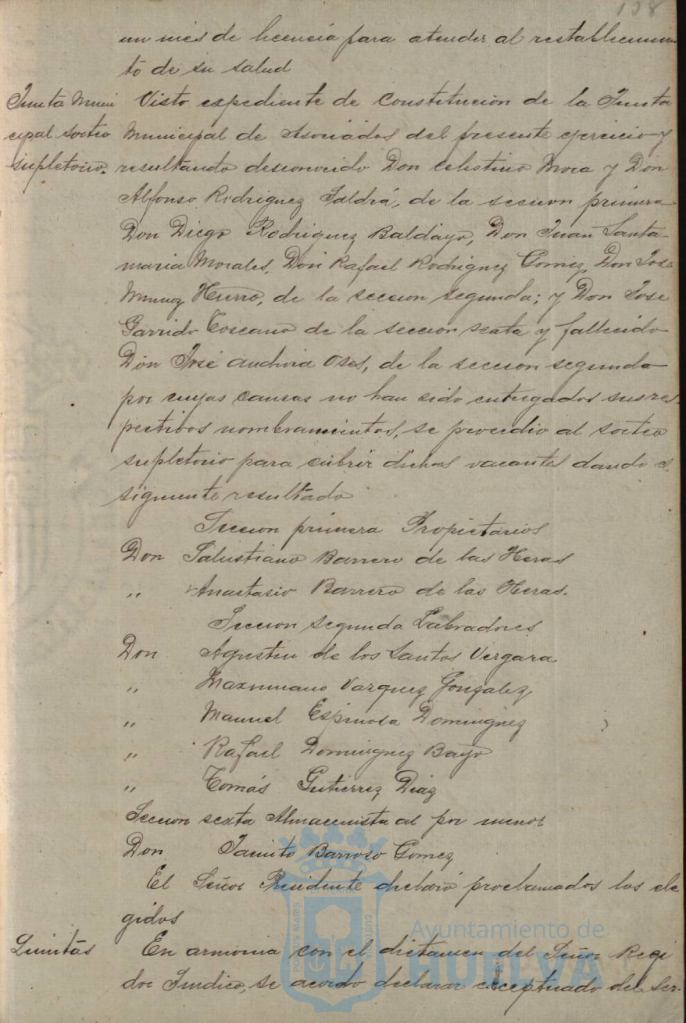 108
un mes de licencia para atender al restablecimien
to de su salud
Junta Muni
cipal sorteo
supletorio.
Visto expediente de constitución de la Junta
Municipal de Asociados del presente ejercicio y
resultando desconocido Don Celestino Mora y Don
Alfonso Rodriguez Saldrá, de la seccion primera
Don Diego Rodriguez Baldayo, Don Juan Santa-
maria Morales, Don Rafael Rodriguez Gomez, Don José
Munoz Hierro, de la seccion segunda; y Don Jose
Garrido Toscano de la sección sexta y fallecido
Don José Osés, de la seccion segunda
por cuyas causas no han sido entregados sus res
pectibos nombramientos, se procedio al sorteo
supletorio para cubrir dichas vacantes dando el
siguiente resultado
Seccion primera Propietarios
Don Salustiano Barrero de las Heras
" Anastasio Barrero de las Heras.
Seccion segunda Labradores
Don Agustin de los Santos Vergara
" Maximiano Vazquez Gonzalez
" Manuel Espinosa Dominguez
" Rafael Dominguez Bayo
" Tomás Gutierrez Diaz
Seccion sexta Almacenista al por menor
Don Jacinto Barroso Gomez
El Señor Presidente declaró proclamados los ele
gidos
Quintas
En armonia con el dictamen del Señor Regi
dor Sindico, se acordo declarar exceptuado del ser-
Ayuntamiento de
HUELVA